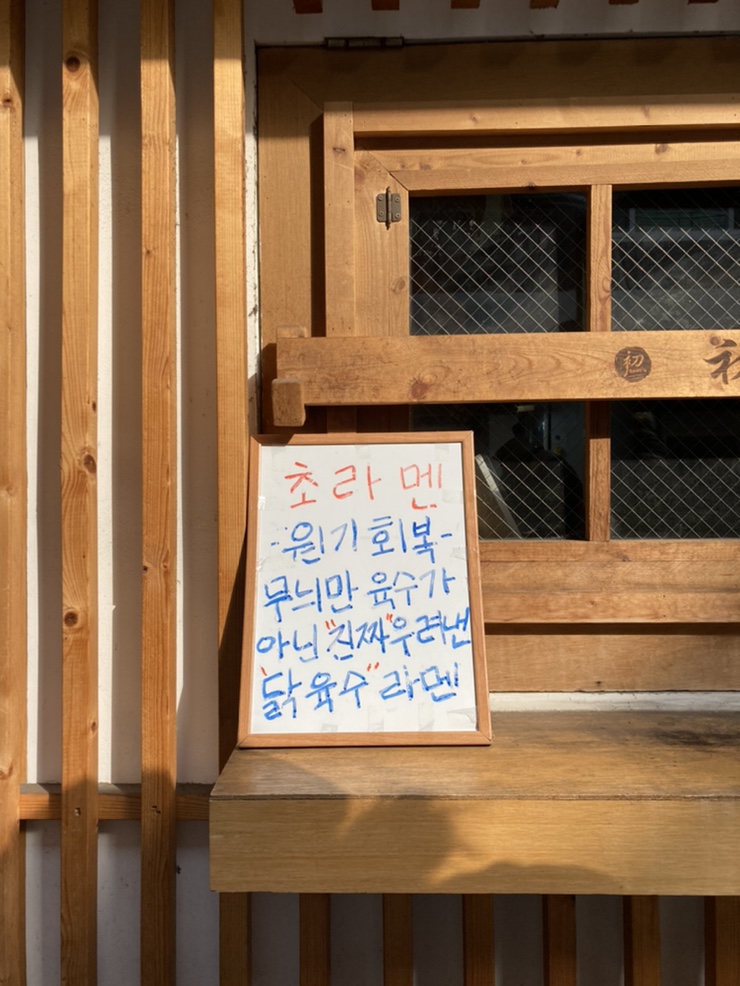 초라멘
-원기회복-
무늬만 육수가
아닌 "진짜" 우려낸
"닭육수" 라멘
初